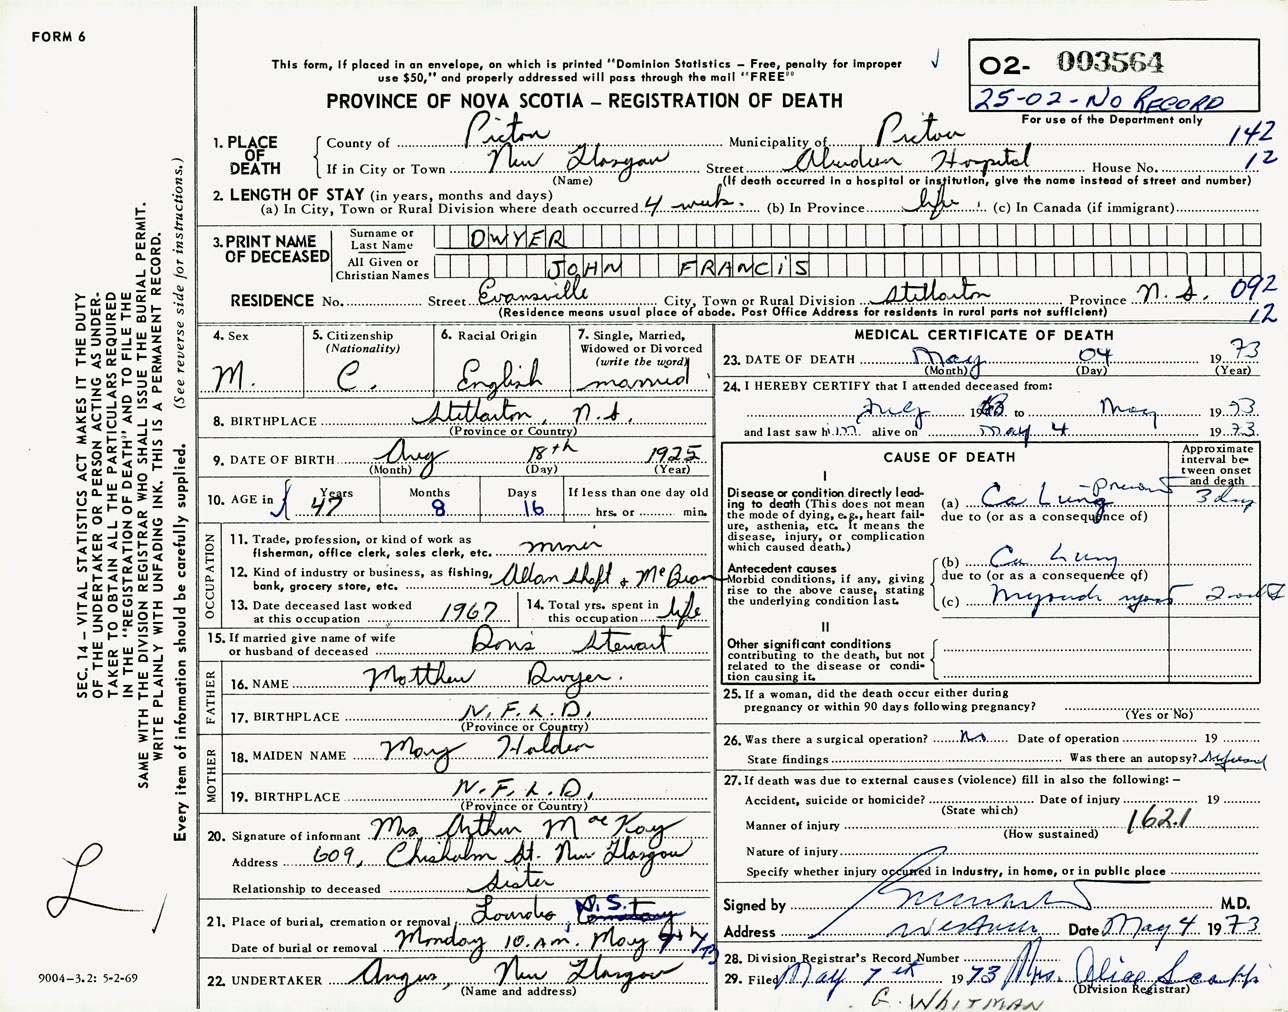 FORM 6
This form, if placed in an envelope, on which is printed "Dominion Statistics – Free, penalty for improper
use $50," and properly addressed will pass through the mail "FREE"
PROVINCE OF NOVA SCOTIA – REGISTRATION OF DEATH
02- 003564
25-02-NO RECORD
For use of the Department only
142
12
1. PLACE OF DEATH
County of Pictou Municipality of Pictou
If in City or Town New Glasgow Street Aberdeen Hospital House No.
(Name) (If death occurred in a hospital or institution, give the name instead of street and number)
2. LENGTH OF STAY (in years, months and days)
(a) In City, Town or Rural Division where death occurred 4 weeks. (b) In Province life. (c) In Canada (if immigrant)
3. PRINT NAME OF DECEASED
Surname or Last Name DWYER
All Given or Christian Names JOHN FRANCIS
RESIDENCE No. Street Evansville City, Town or Rural Division Stellarton Province N.S. 092
(Residence means usual place of abode. Post Office Address for residents in rural parts not sufficient) 12
4. Sex M.
5. Citizenship (Nationality) C.
6. Racial Origin English
7. Single, Married, Widowed or Divorced (write the word) married
8. BIRTHPLACE Stellarton, N.S.
(Province or Country)
9. DATE OF BIRTH Aug 18th 1925
(Month) (Day) (Year)
10. AGE in Years 47 Months 8 Days 16 If less than one day old
hrs. or min.
OCCUPATION
11. Trade, profession, or kind of work as fisherman, office clerk, sales clerk, etc. miner
12. Kind of industry or business, as fishing, bank, grocery store, etc. Allan Shaft & McBean
13. Date deceased last worked at this occupation 1967
14. Total yrs. spent in this occupation life
15. If married give name of wife or husband of deceased Doris Stewart
FATHER
16. NAME Matthew Dwyer.
17. BIRTHPLACE N.F.L.D.
(Province or Country)
MOTHER
18. MAIDEN NAME Mary Holden
19. BIRTHPLACE N.F.L.D.
(Province or Country)
20. Signature of informant Mrs Arthur MacKay
Address 609, Chisholm St. New Glasgow
Relationship to deceased Sister
21. Place of burial, cremation or removal Lourdes N.S. Cemetary
Date of burial or removal Monday 10 A.M. May 7th/73
22. UNDERTAKER Angus, New Glasgow
(Name and address)
MEDICAL CERTIFICATE OF DEATH
23. DATE OF DEATH May 04 1973
(Month) (Day) (Year)
24. I HEREBY CERTIFY that I attended deceased from:
July 19 to May 1973
and last saw him alive on May 4 1973
CAUSE OF DEATH
Approximate interval between onset and death
I
Disease or condition directly leading to death (This does not mean the mode of dying, e.g., heart failure, asthenia, etc. It means the disease, injury, or complication which caused death.)
(a) Ca Lung 3 day
due to (or as a consequence of)
Antecedent causes
Morbid conditions, if any, giving rise to the above cause, stating the underlying condition last.
(b) Ca Lung
due to (or as a consequence of)
(c)
II
Other significant conditions contributing to the death, but not related to the disease or condition causing it.
25. If a woman, did the death occur either during pregnancy or within 90 days following pregnancy?
(Yes or No)
26. Was there a surgical operation? No Date of operation 19
State findings Was there an autopsy? refused
27. If death was due to external causes (violence) fill in also the following: –
Accident, suicide or homicide? Date of injury 19
(State which)
Manner of injury 1621
(How sustained)
Nature of injury
Specify whether injury occurred in Industry, in home, or in public place
Signed by M.D.
Address Westville Date May 4 1973
28. Division Registrar's Record Number
29. Filed May 7th 1973 Mrs. Alice
(Division Registrar)
G. WHITMAN
SEC. 14 – VITAL STATISTICS ACT MAKES IT THE DUTY
OF THE UNDERTAKER OR PERSON ACTING AS UNDER-
TAKER TO OBTAIN ALL THE PARTICULARS REQUIRED
IN THE "REGISTRATION OF DEATH" AND TO FILE THE
SAME WITH THE DIVISION REGISTRAR WHO SHALL ISSUE THE BURIAL PERMIT.
WRITE PLAINLY WITH UNFADING INK. THIS IS A PERMANENT RECORD.
Every item of information should be carefully supplied. (See reverse side for instructions.)
L
9004–3.2: 5-2-69